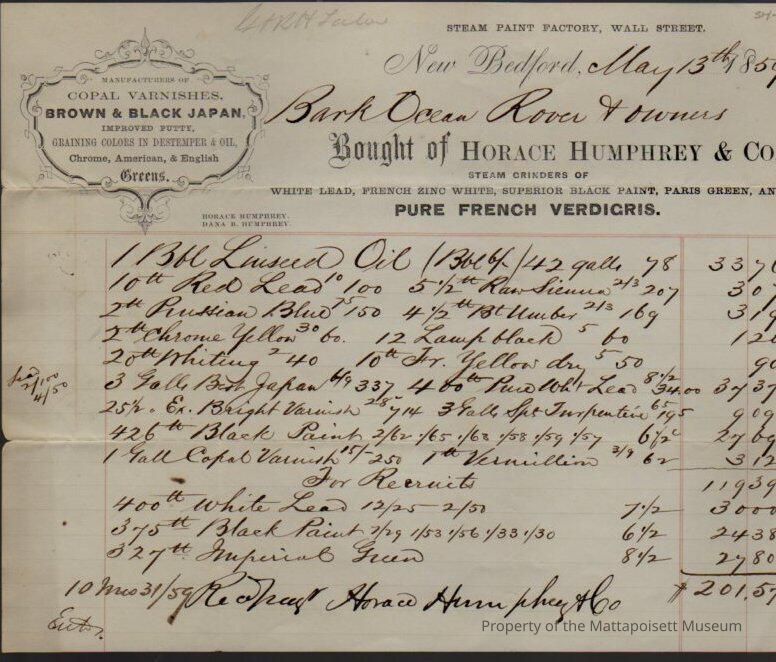 STEAM PAINT FACTORY, WALL STREET.
New Bedford, May 13th 1859
MANUFACTURERS OF
COPAL VARNISHES,
BROWN & BLACK JAPAN,
IMPROVED PUTTY,
GRAINING COLORS IN DESTEMPER & OIL,
Chrome, American, & English
Greens.
Bark Ocean Rover & owners
Bought of HORACE HUMPHREY & CO
STEAM GRINDERS OF
WHITE LEAD, FRENCH ZINC WHITE, SUPERIOR BLACK PAINT, PARIS GREEN, AN
PURE FRENCH VERDIGRIS.
HORACE HUMPHREY.
DANA B. HUMPHREY.
1 Bbl Linseed Oil (Bbl 6/) 42 galls 78 337
10 lb Red Lead 10 100 5 1/2 lb Raw Sienna 2/3 207 30
2 lb Prussian Blue 75 150 4 1/2 lb Bt Umber 2/3 169 319
2 lb Chrome Yellow 30 60. 12 Lampblack 5 60 12
20 lb Whiting 2 40 10 lb Fr. Yellow dry 5 50 90
3 Galls Best Japan 6/9 337 400 lb Pure Wht Lead 8 1/2 34.00 3737
25 1/2 Ex. Bright Varnish 714 3 Galls Spt Turpentine 65 195 909
426 lb Black Paint 2/62 1/65 1/68 1/58 1/59 1/57 6 1/2 2769
1 Gall Copal Varnish 15/- 250 1 lb Vermillion 3/9 62 312
For Recruits 11939
400 lb White Lead 12/25 2/50 7 1/2 3000
375 lb Black Paint 2/29 1/53 1/56 1/33 1/30 6 1/2 2438
327 lb Imperial Green 8 1/2 2780
201.57
10 mo 31/59 Recd payt Horace Humphrey & Co
Property of the Mattapoisett Museum